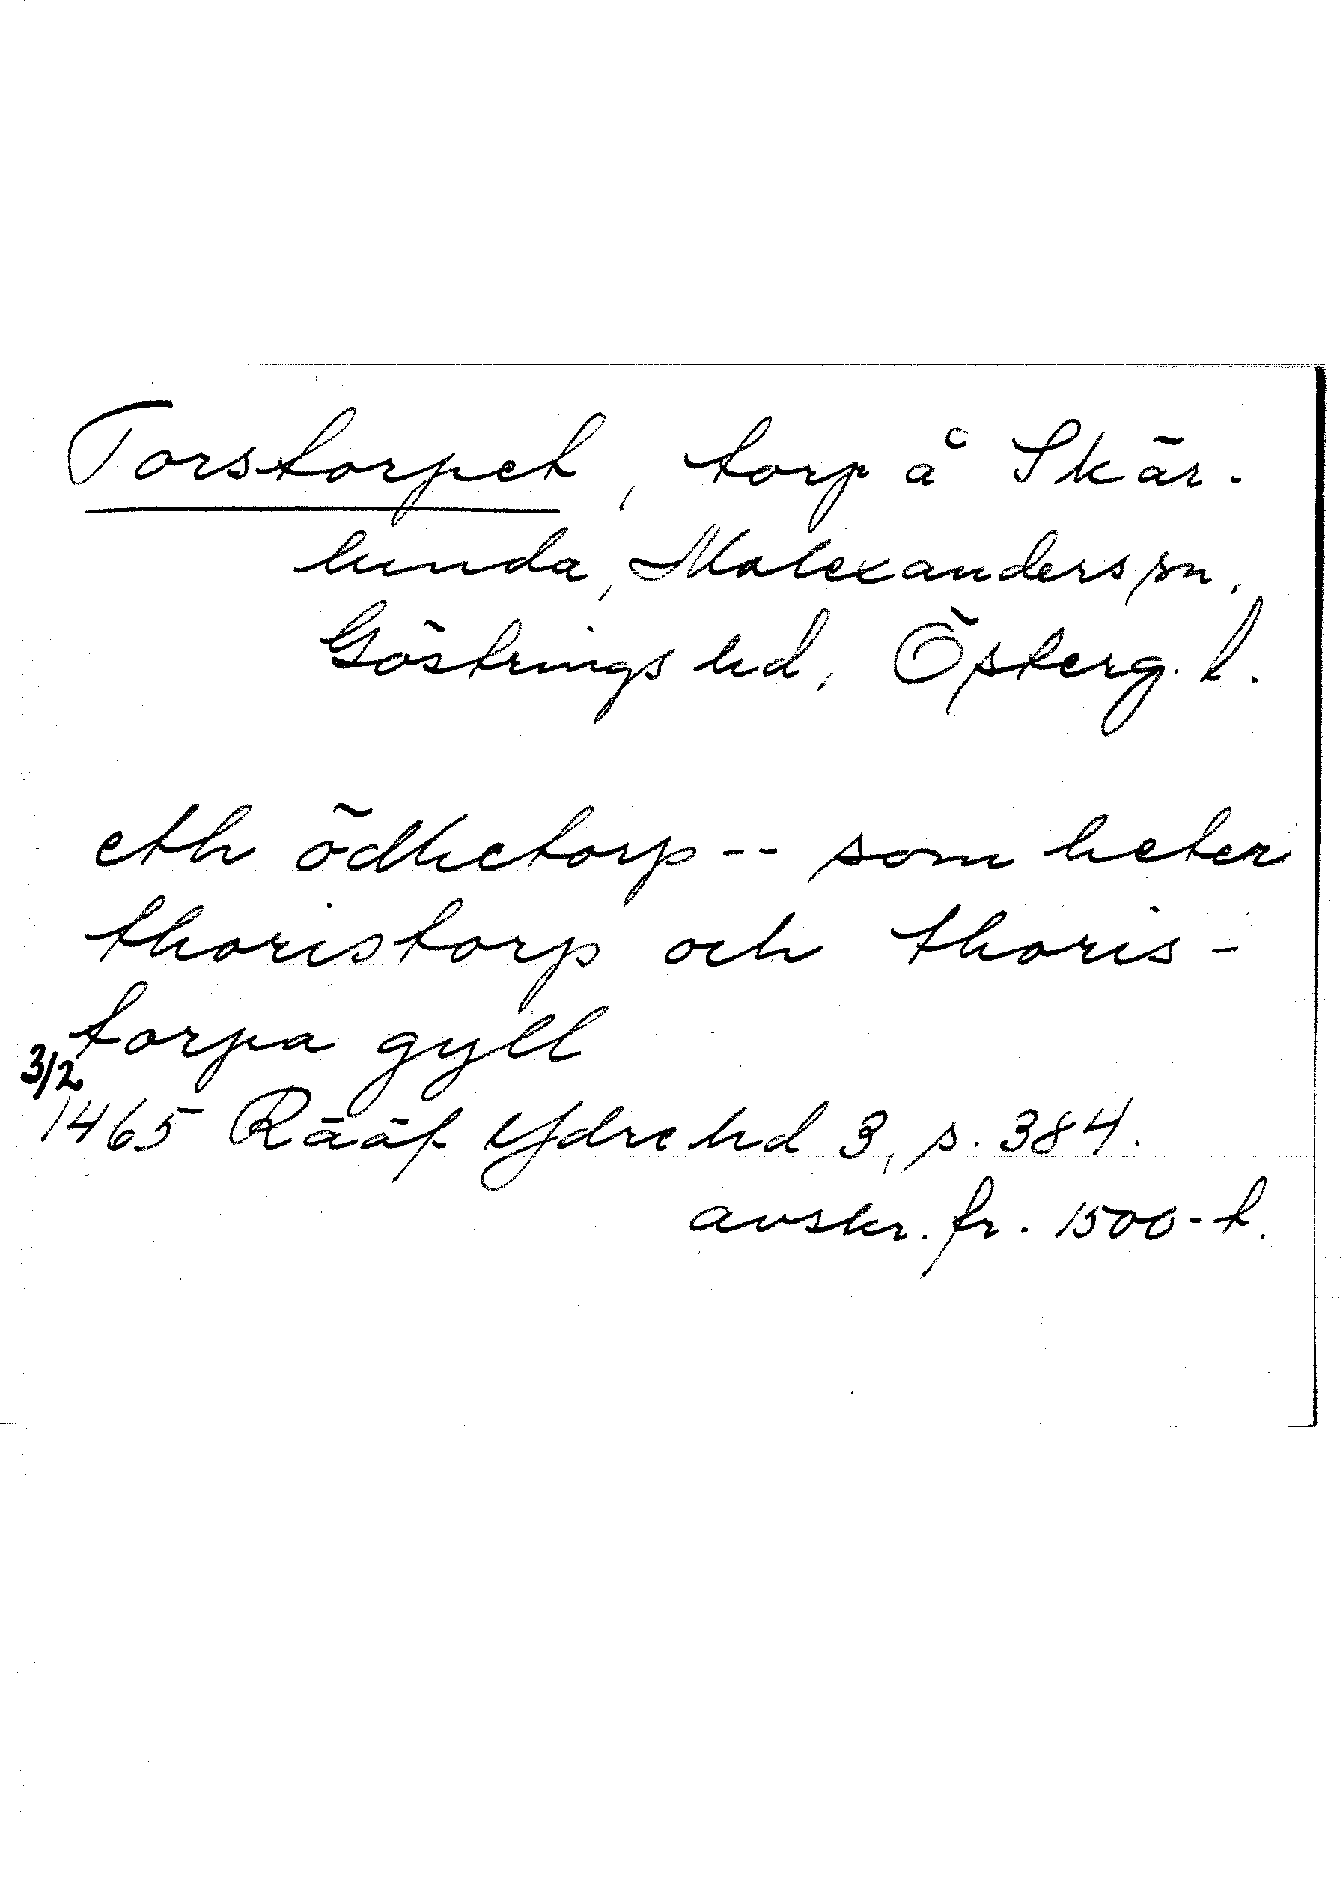 Torstorpet, torp å Skär-
lunda, Malexanders sn,
Göstrings hd, Österg. l.
eth ödhetorp -- som heter
thoristorp och thoris-
torpa gyll
3/2
1465 Rääf Ydre hd 3, s. 384.
avskr. fr. 1500-t.